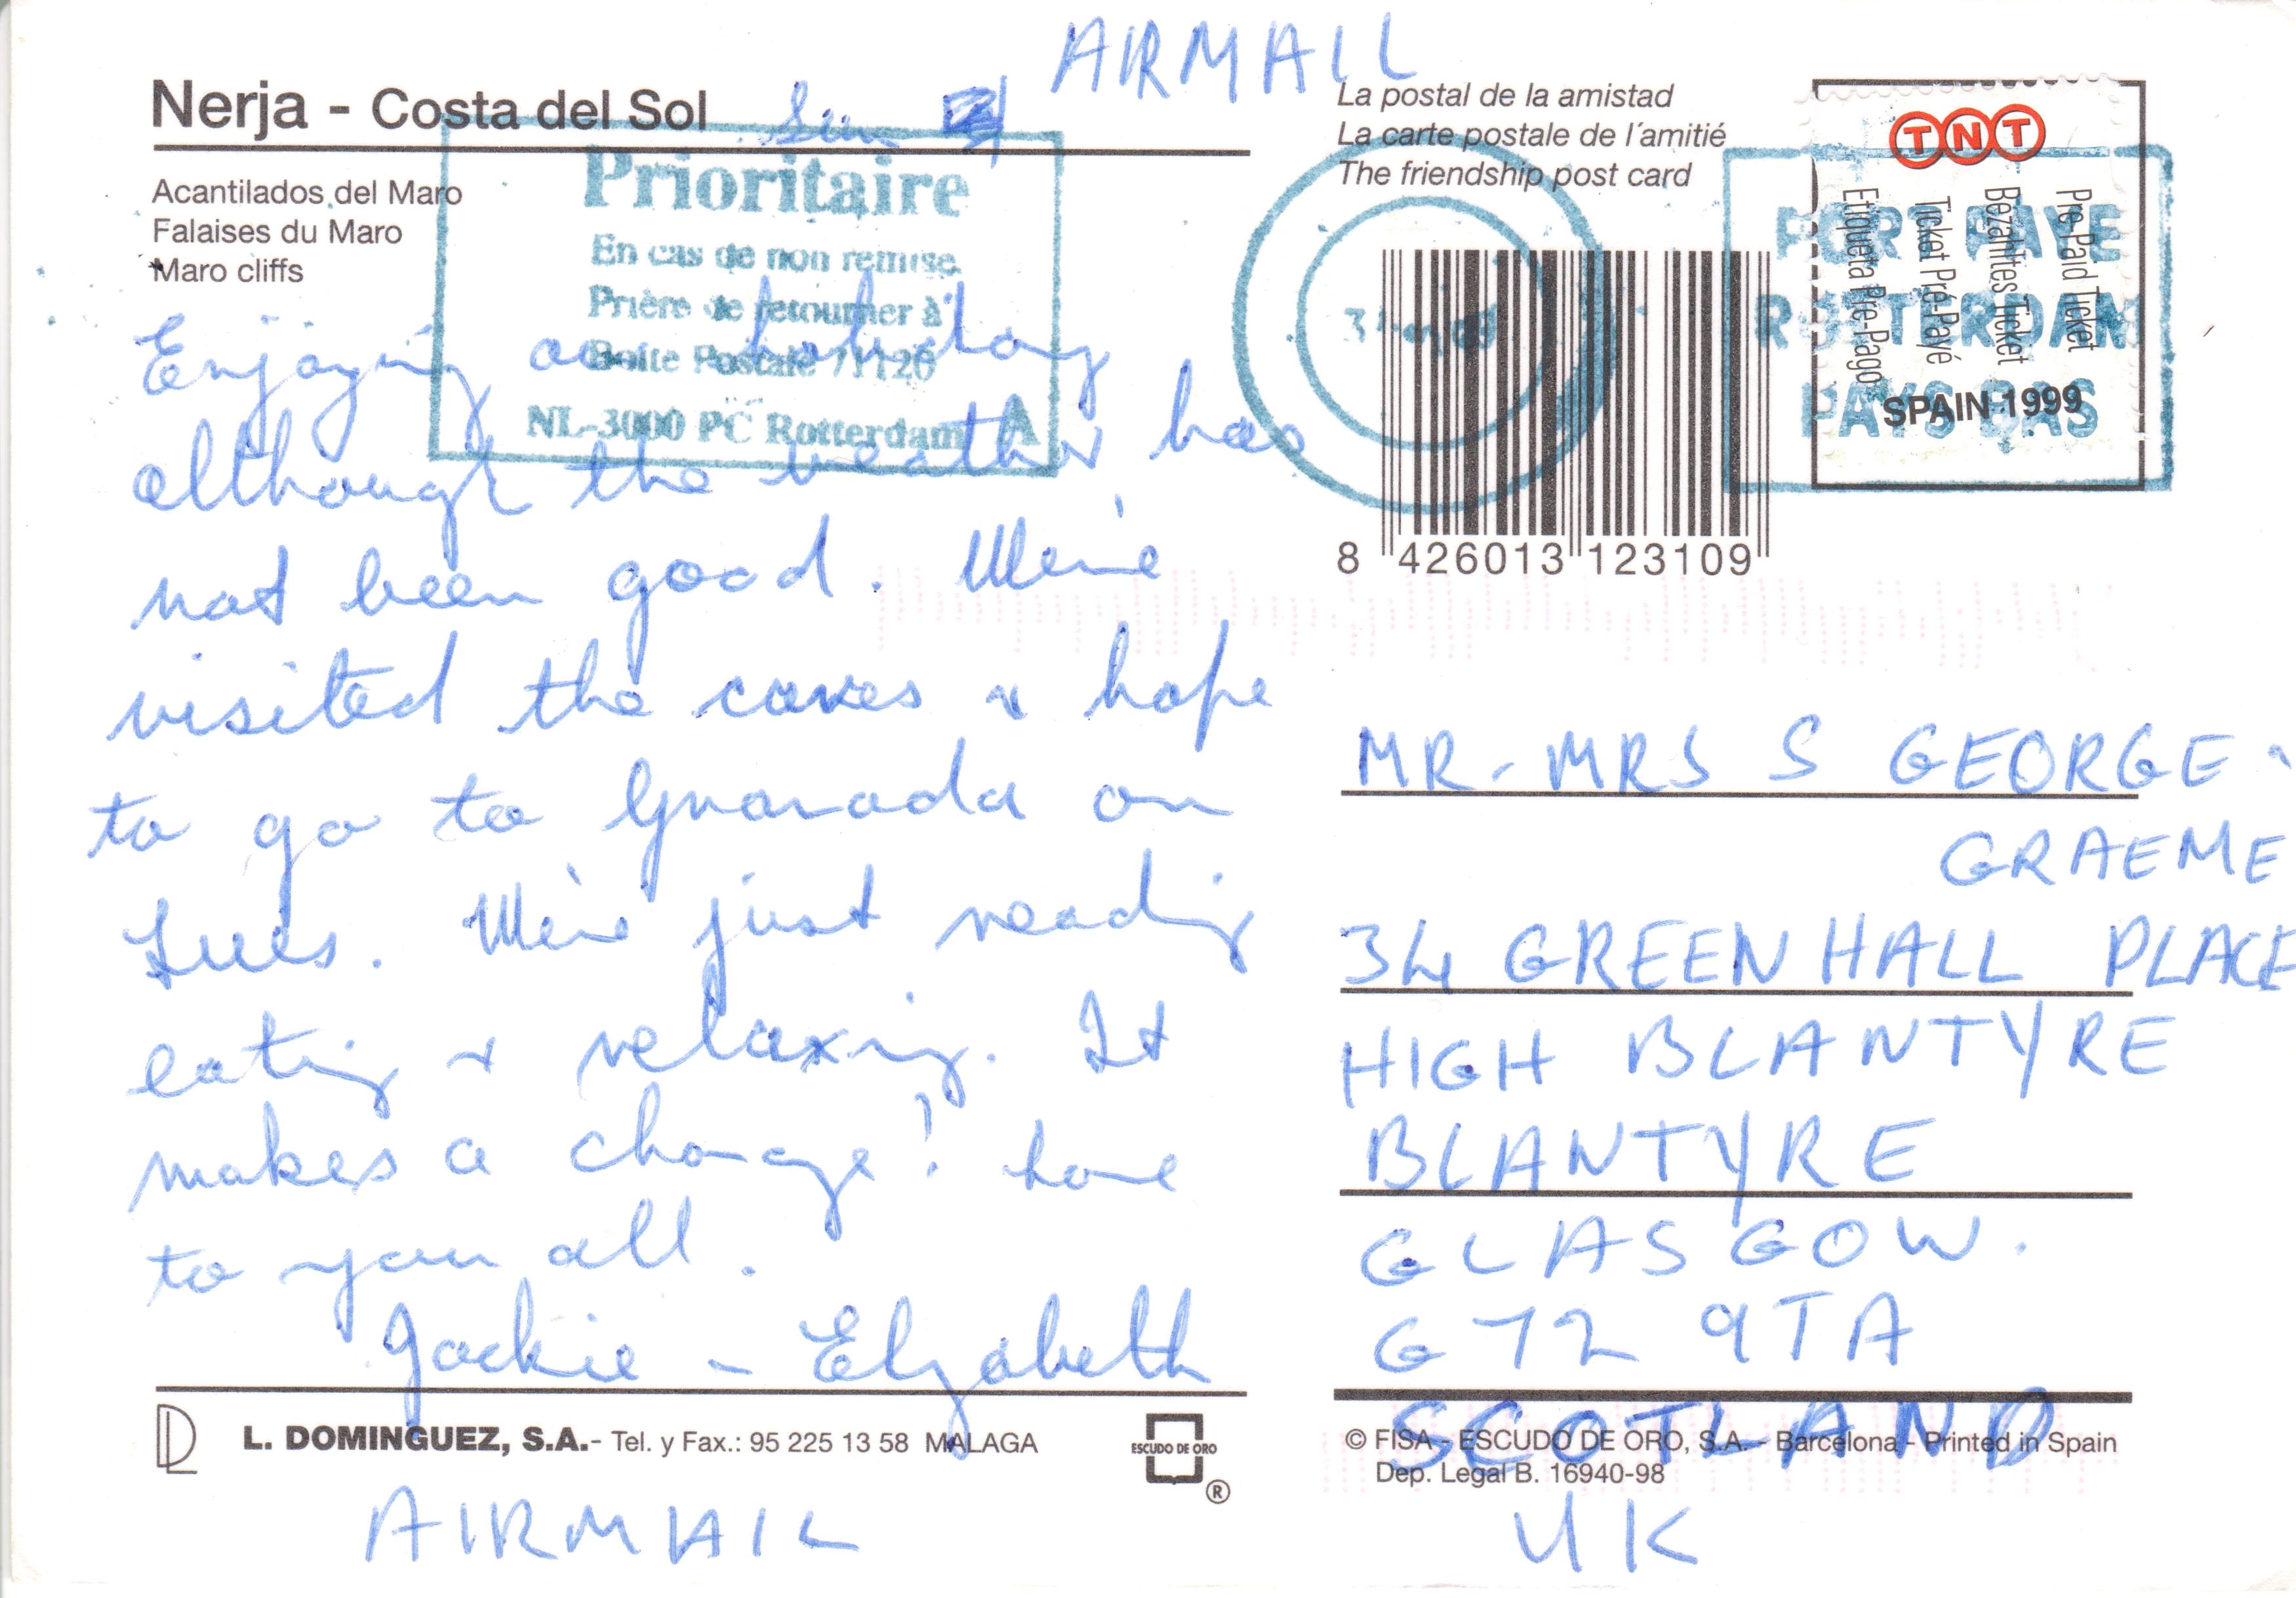 AIRMAIL
Nerja - Costa del Sol
Sun
Acantilados del Maro
Falaises du Maro
Maro cliffs
Prioritaire
En cas de non remise
Prière de retourner à
Boîte Postale 71120
NL-3000 PC Rotterdam A
Enjoying our holiday
although the weather has
not been good. We've
visited the caves & hope
to go to Granada on
Tues. We're just reading
eating & relaxing. It
makes a change! Love
to you all.
Jackie - Elizabeth
L. DOMINGUEZ, S.A.- Tel. y Fax.: 95 225 13 58 MALAGA
ESCUDO DE ORO
®
AIRMAIL
La postal de la amistad
La carte postale de l'amitié
The friendship post card
TNT
Pre-Paid Ticket
Bezahltes Ticket
Ticket Pré-Payé
Etiqueta Pre-Pago
SPAIN 1999
PORT PAYE
ROTTERDAM
PAYS BAS
8 426013 123109
MR. MRS S GEORGE.
GRAEME
34 GREENHALL PLACE
HIGH BLANTYRE
BLANTYRE
GLASGOW.
G72 9TA
SCOTLAND
© FISA - ESCUDO DE ORO, S.A. - Barcelona - Printed in Spain
Dep. Legal B. 16940-98
UK